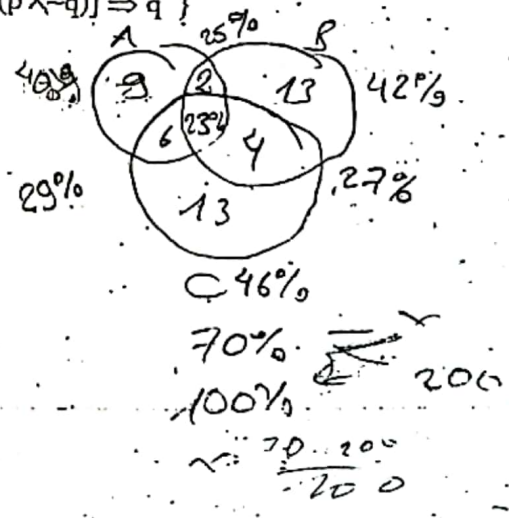 (p ∧ ~q)] ⇒ q }
A 25% B
40% 9 2 13 42%
6 23% 4
29% 13 27%
C 46%
70%
100% 200
70 .. 200
200